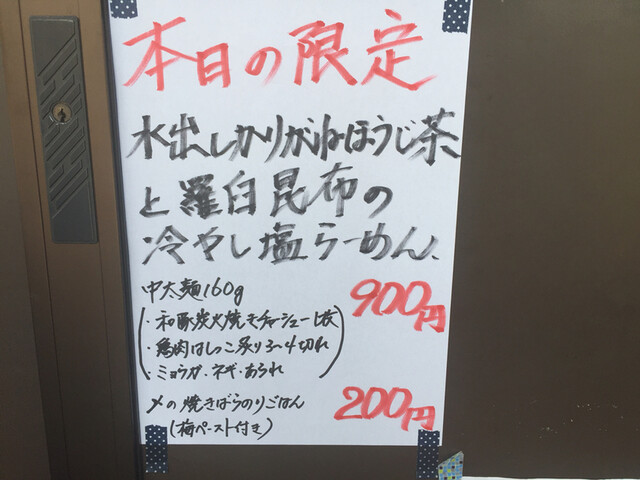 本日の限定
水出しかりがねほうじ茶
と羅臼昆布の
冷やし塩らーめん、
中太麺160g
900円
・和豚炭火焼きチャーシュー1枚
・鶏肉はしっこ炙り3〜4切れ
・ミョウガ・ネギ・あられ
〆の焼きばらのりごはん
(梅ペースト付き)
200円